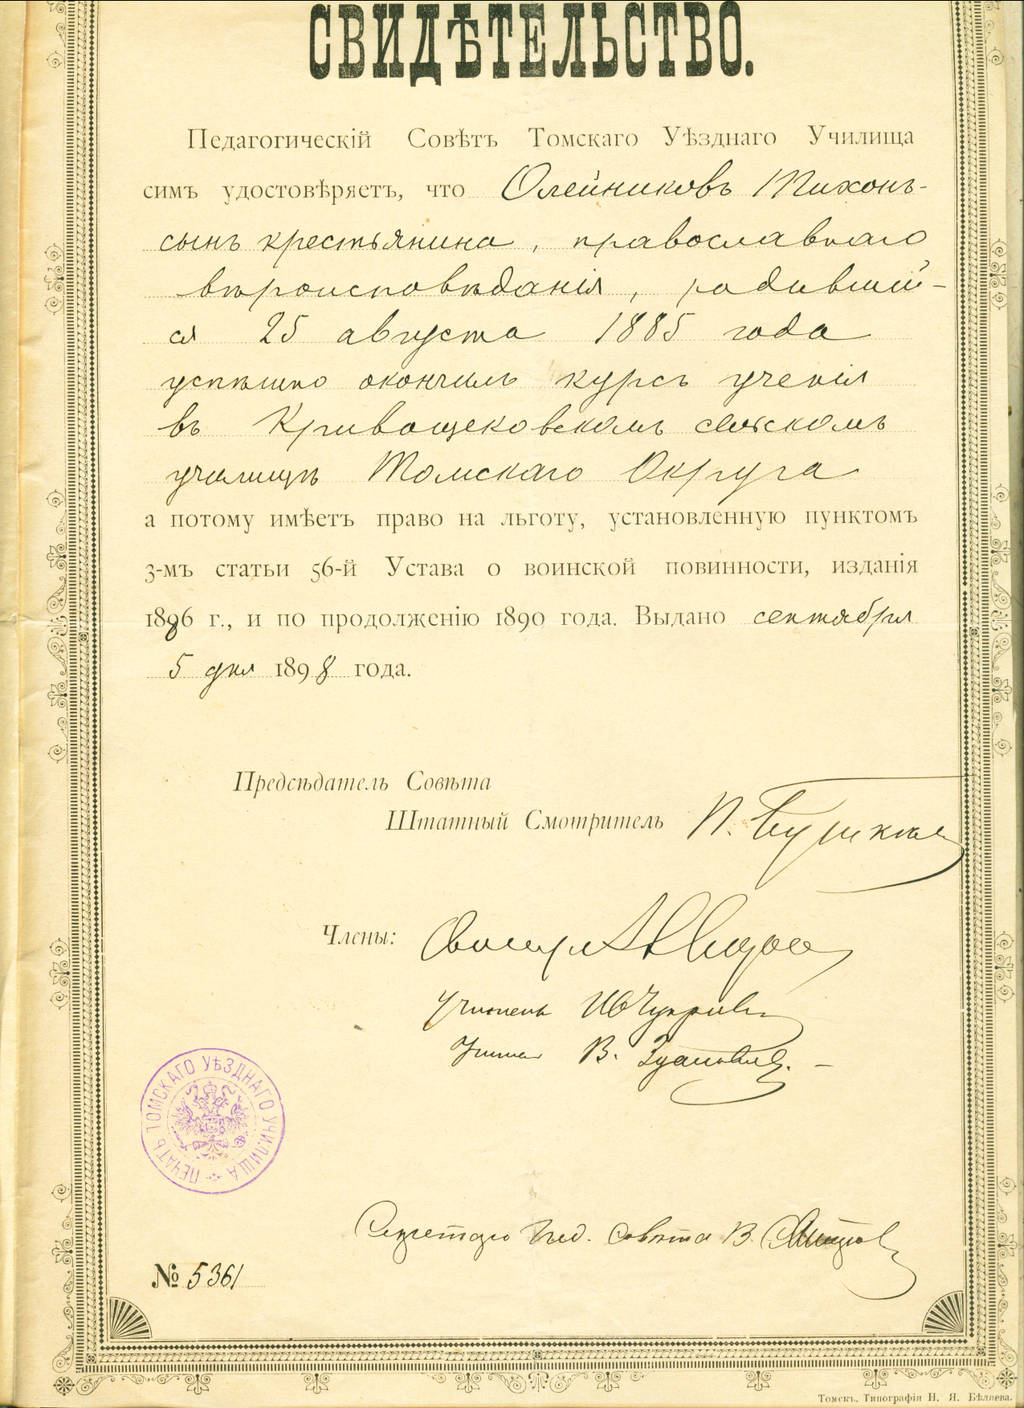 СВИДѢТЕЛЬСТВО.
Педагогическій Совѣтъ Томскаго Уѣзднаго Училища
симъ удостовѣряетъ, что Олейниковъ Тихонъ-
сынъ крестьянина, православнаго
вѣроисповѣданія, родившій-
ся 25 августа 1885 года
успѣшно окончилъ курсъ ученія
въ Кривощековскомъ сельскомъ
училищѣ Томскаго Округа
а потому имѣетъ право на льготу, установленную пунктомъ
3-мъ статьи 56-й Устава о воинской повинности, изданія
1886 г., и по продолженію 1890 года. Выдано сентября
5 дня 1898 года.
Предсѣдатель Совѣта
Штатный Смотритель П.
Члены:
Учитель
В.
ПЕЧАТЬ ТОМСКАГО УѢЗДНАГО УЧИЛИЩА
Секретарь Пед. Совѣта В.
№ 5361
Томскъ, Типографія Н. Я. Бѣляева.